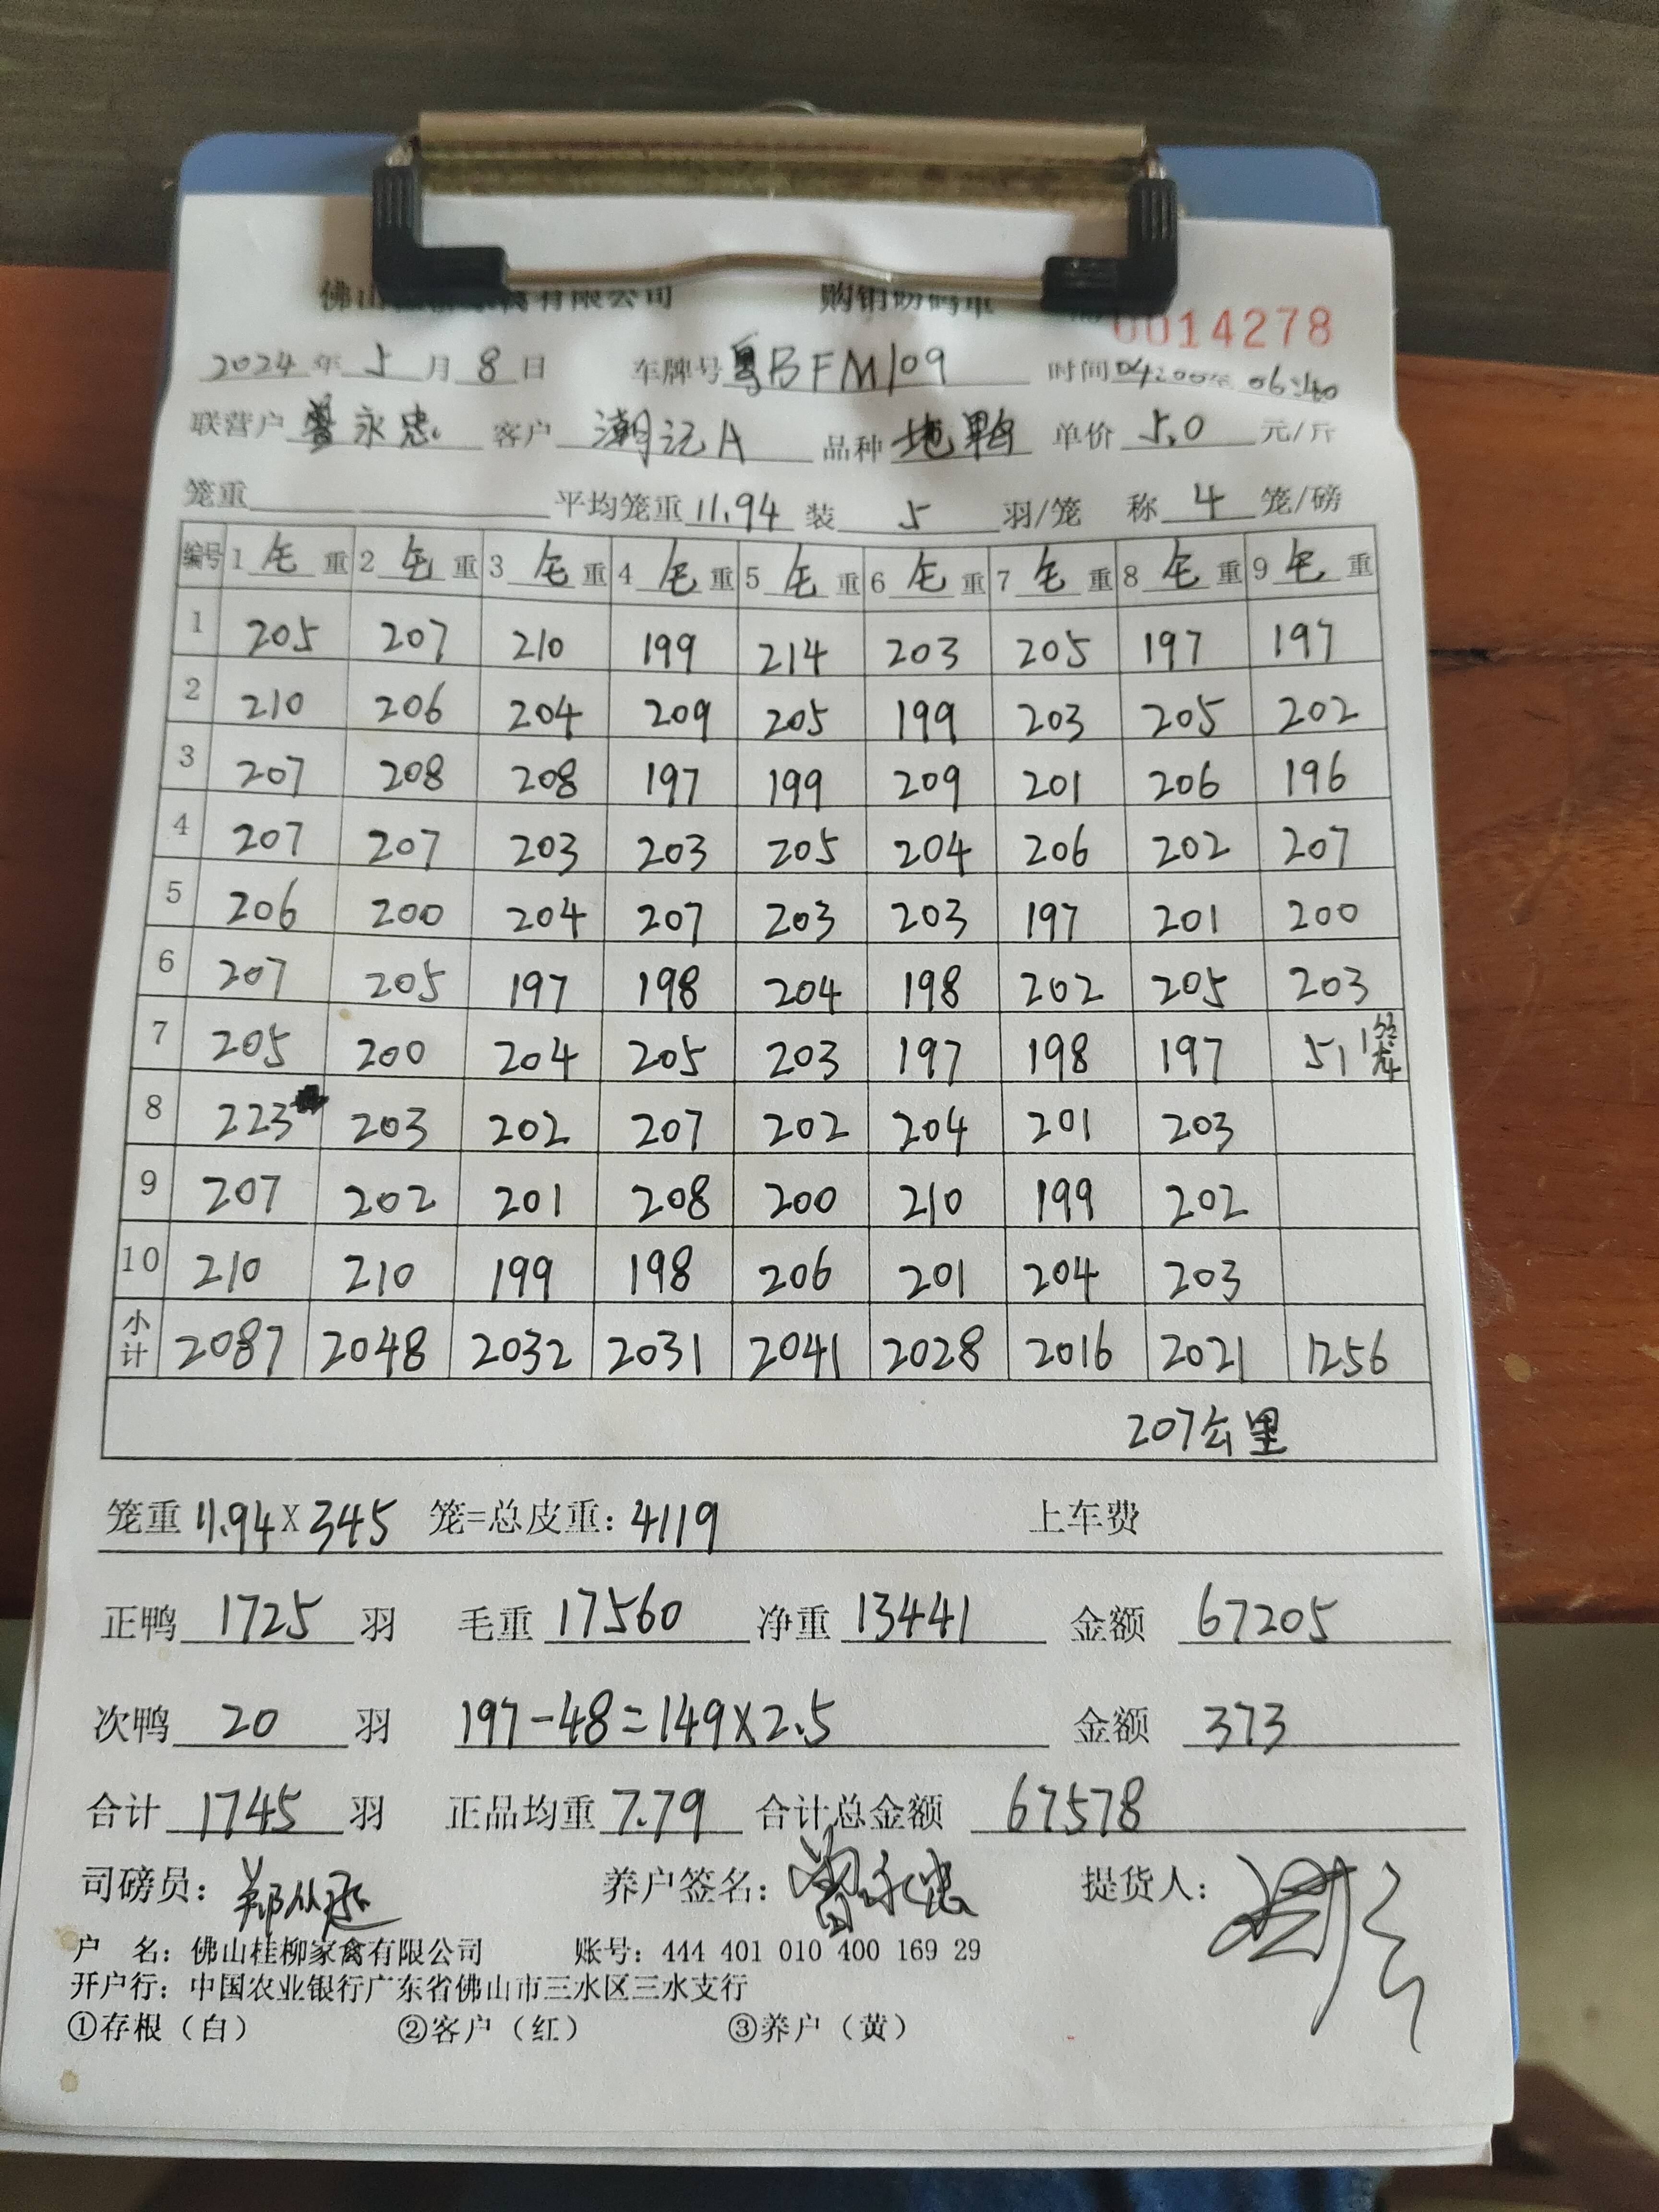 佛山 有限公司 购销磅码单 0014278
2024 年 5 月 8 日 车牌号 粤BFM109 时间 04:00至 06:40
联营户 曾永忠 客户 潮记A 品种 地鸭 单价 5.0 元/斤
笼重 平均笼重 11.94 装 5 羽/笼 称 4 笼/磅
编号 1 毛 重 2 毛 重 3 毛 重 4 毛 重 5 毛 重 6 毛 重 7 毛 重 8 毛 重 9 毛 重
1 205 207 210 199 214 203 205 197 197
2 210 206 204 209 205 199 203 205 202
3 207 208 208 197 199 209 201 206 196
4 207 207 203 203 205 204 206 202 207
5 206 200 204 207 203 203 197 201 200
6 207 205 197 198 204 198 202 205 203
7 205 200 204 205 203 197 198 197 51 1笼
8 223 203 202 207 202 204 201 203
9 207 202 201 208 200 210 199 202
10 210 210 199 198 206 201 204 203
小计 2087 2048 2032 2031 2041 2028 2016 2021 1256
207公里
笼重 11.94 X 345 笼=总皮重: 4119 上车费
正鸭 1725 羽 毛重 17560 净重 13441 金额 67205
次鸭 20 羽 197-48=149X2.5 金额 373
合计 1745 羽 正品均重 7.79 合计总金额 67578
司磅员: 养户签名: 曾永忠 提货人:
户 名: 佛山桂柳家禽有限公司 账号: 444 401 010 400 169 29
开户行: 中国农业银行广东省佛山市三水区三水支行
①存根（白） ②客户（红） ③养户（黄）